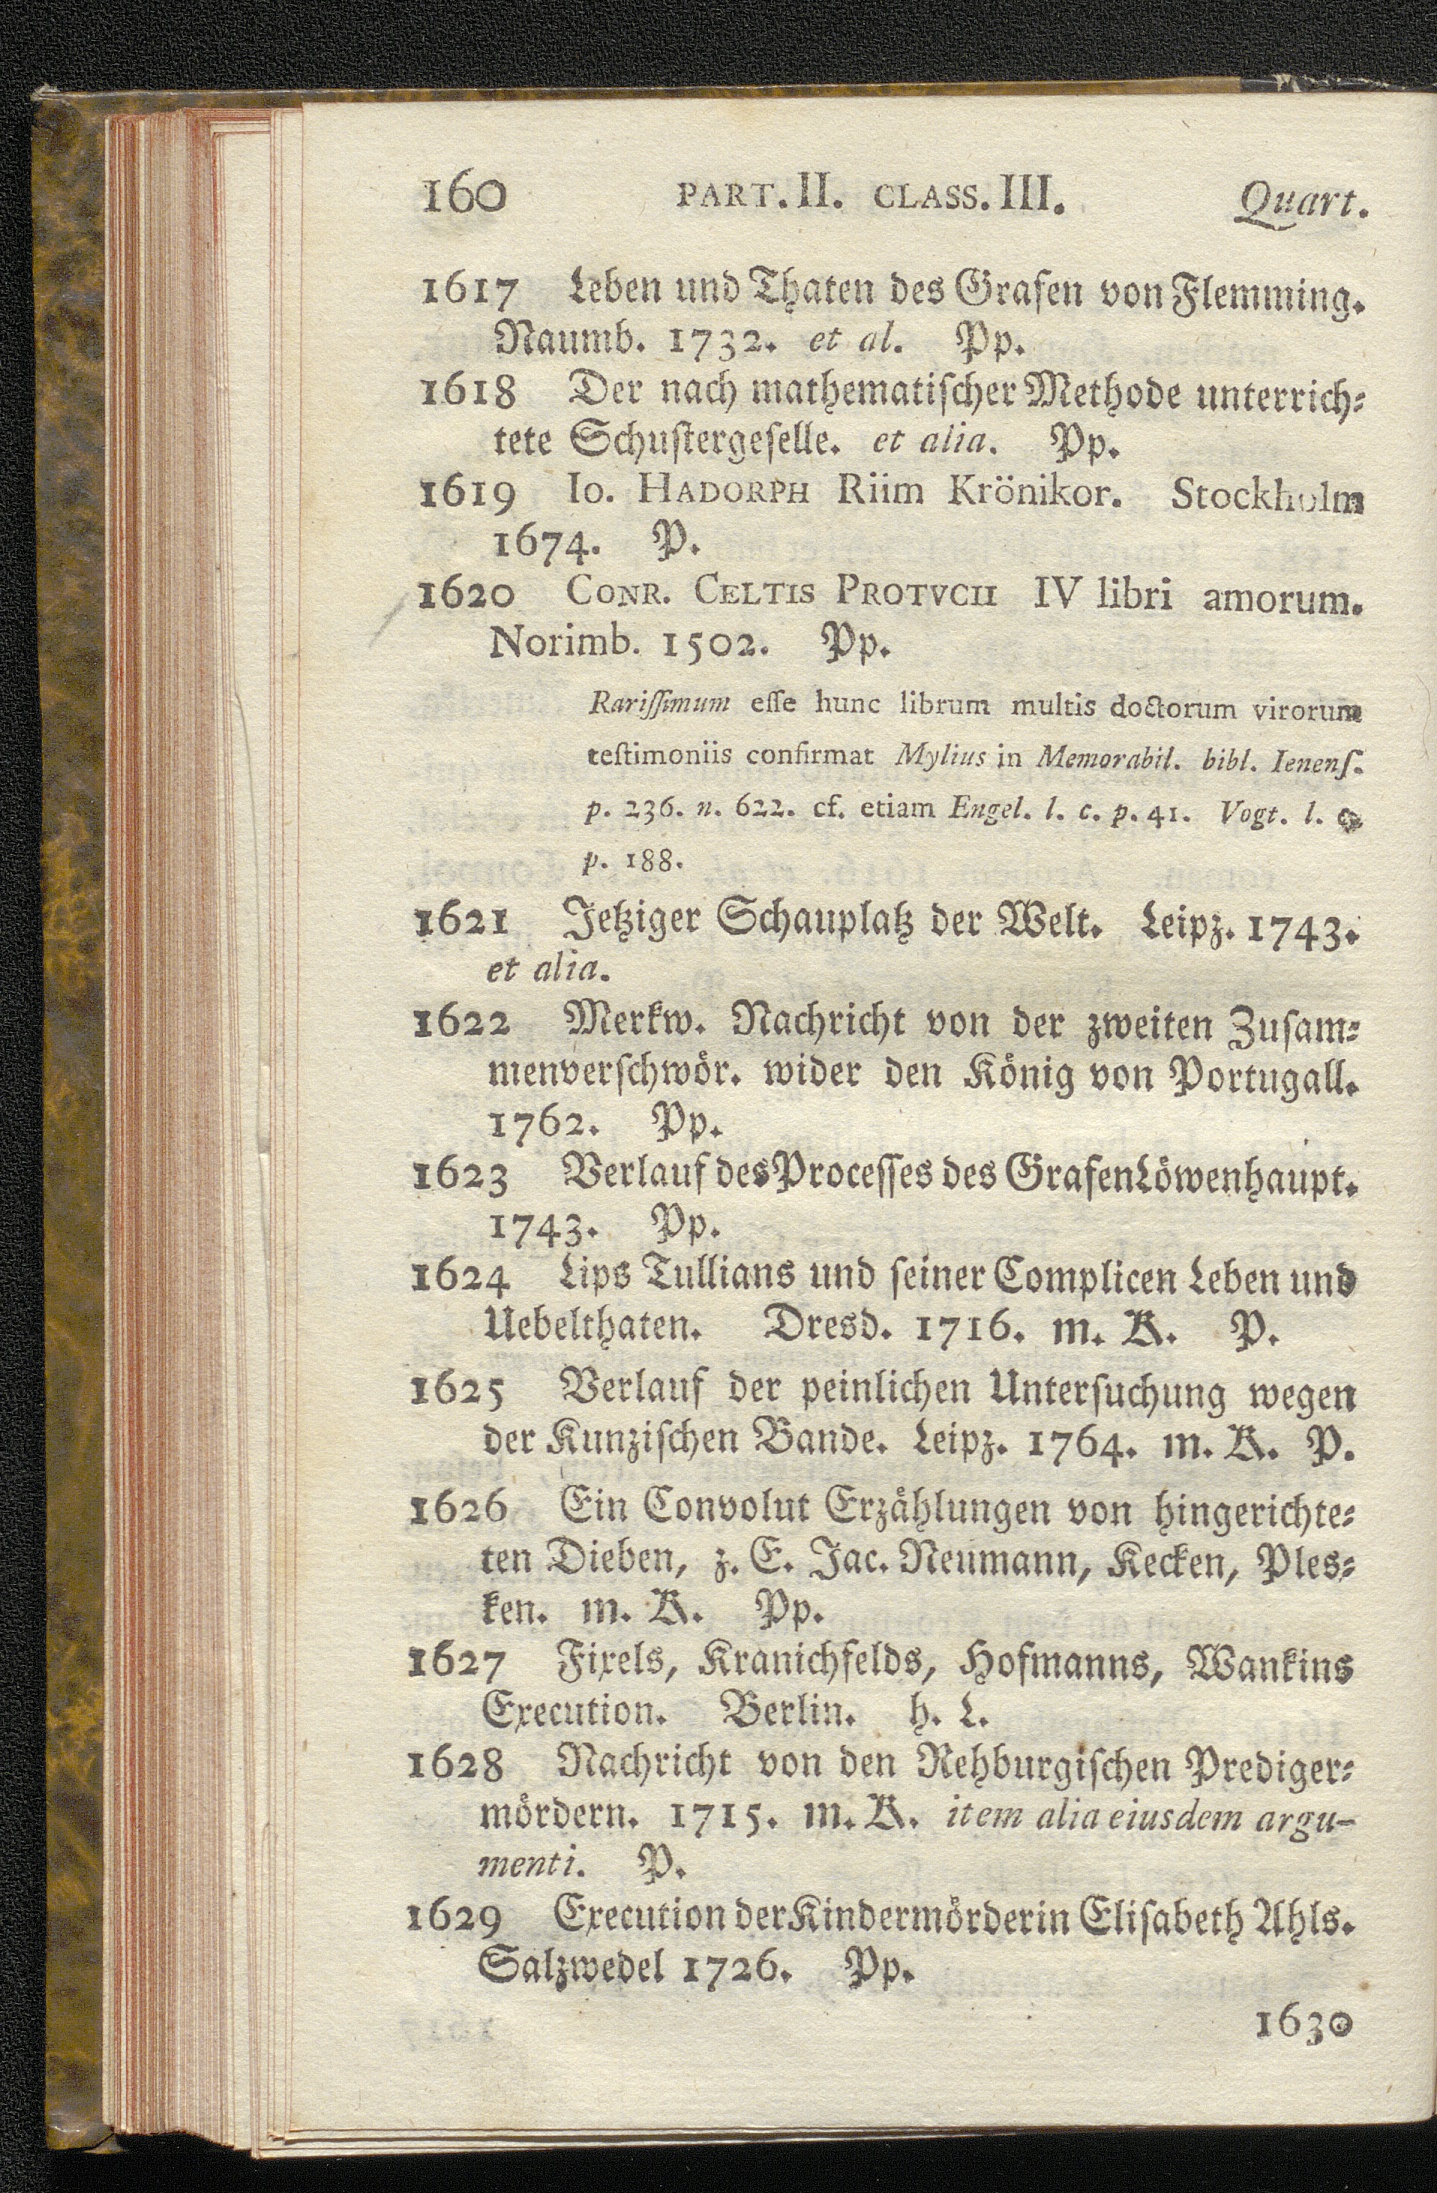 160 PART. II. CLASS. III. Quart.
1617 Leben und Thaten des Grafen von Flemming.
Naumb. 1732. et al. Pp.
1618 Der nach mathematiſcher Methode unterrich⸗
tete Schuſtergeſelle. et alia. Pp.
1619 Io. HADORPH Riim Krönikor. Stockholm
1674. P.
1620 CONR. CELTIS PROTVCII IV libri amorum.
Norimb. 1502. Pp.
Rariſſimum eſſe hunc librum multis doctorum virorum
teſtimoniis confirmat Mylius in Memorabil. bibl. Ienenſ.
p. 236. n. 622. cf. etiam Engel. l. c. p. 41. Vogt. l. c.
p. 188.
1621 Jetziger Schauplatz der Welt. Leipz. 1743.
et alia.
1622 Merkw. Nachricht von der zweiten Zuſam⸗
menverſchwör. wider den König von Portugall.
1762. Pp.
1623 Verlauf des Proceſſes des Grafen Löwenhaupt.
1743. Pp.
1624 Lips Tullians und ſeiner Complicen Leben und
Uebelthaten. Dresd. 1716. m. K. P.
1625 Verlauf der peinlichen Unterſuchung wegen
der Kunziſchen Bande. Leipz. 1764. m. K. P.
1626 Ein Convolut Erzählungen von hingerichte⸗
ten Dieben, z. E. Jac. Neumann, Kecken, Ples⸗
ken. m. K. Pp.
1627 Fixels, Kranichfelds, Hofmanns, Wankins
Execution. Berlin. h. L.
1628 Nachricht von den Rehburgiſchen Prediger⸗
mördern. 1715. m. K. item alia eiusdem argu-
menti. P.
1629 Execution der Kindermörderin Eliſabeth Ahls.
Salzwedel 1726. Pp.
1630